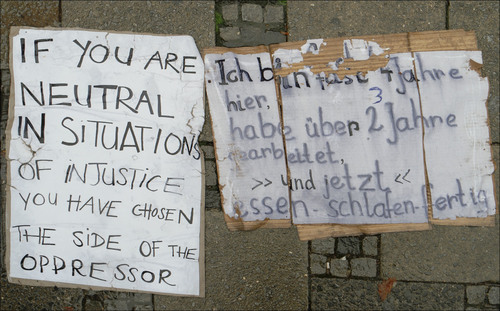 IF YOU ARE
NEUTRAL
IN SITUATIONS
OF INJUSTICE
YOU HAVE CHOSEN
THE SIDE OF THE
OPPRESSOR
Ich bin fast 4 Jahre
hier,
3
habe über 2 Jahre
gearbeitet,
>> und jetzt <<
essen-schlafen-fertig